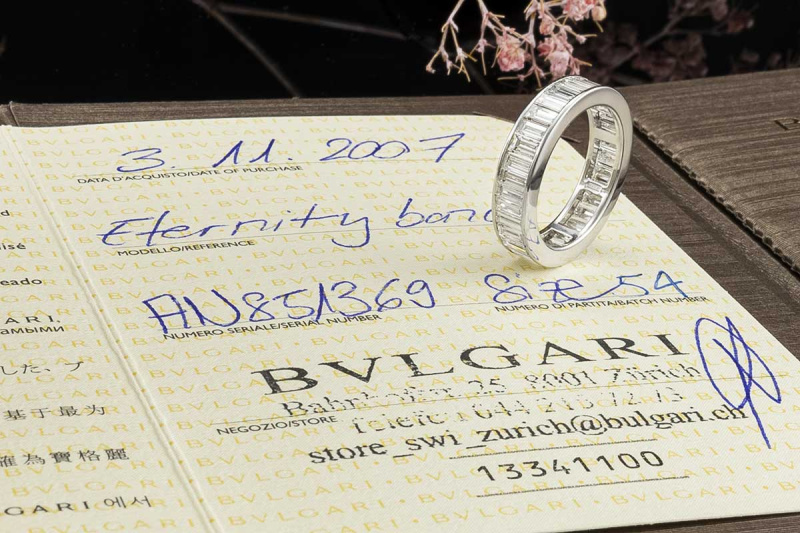 3. 11. 2007
DATA D'ACQUISTO/DATE OF PURCHASE
Eternity band
MODELLO/REFERENCE
AN851369 Size 54
NUMERO SERIALE/SERIAL NUMBER NUMERO DI PARTITA/BATCH NUMBER
BVLGARI
Bahnhofstr. 25 8001 Zürich
NEGOZIO/STORE
store_swi_zurich@bulgari.ch
13341100
した、ブ
基于最为
確為寶格麗
BVLGARI 에서